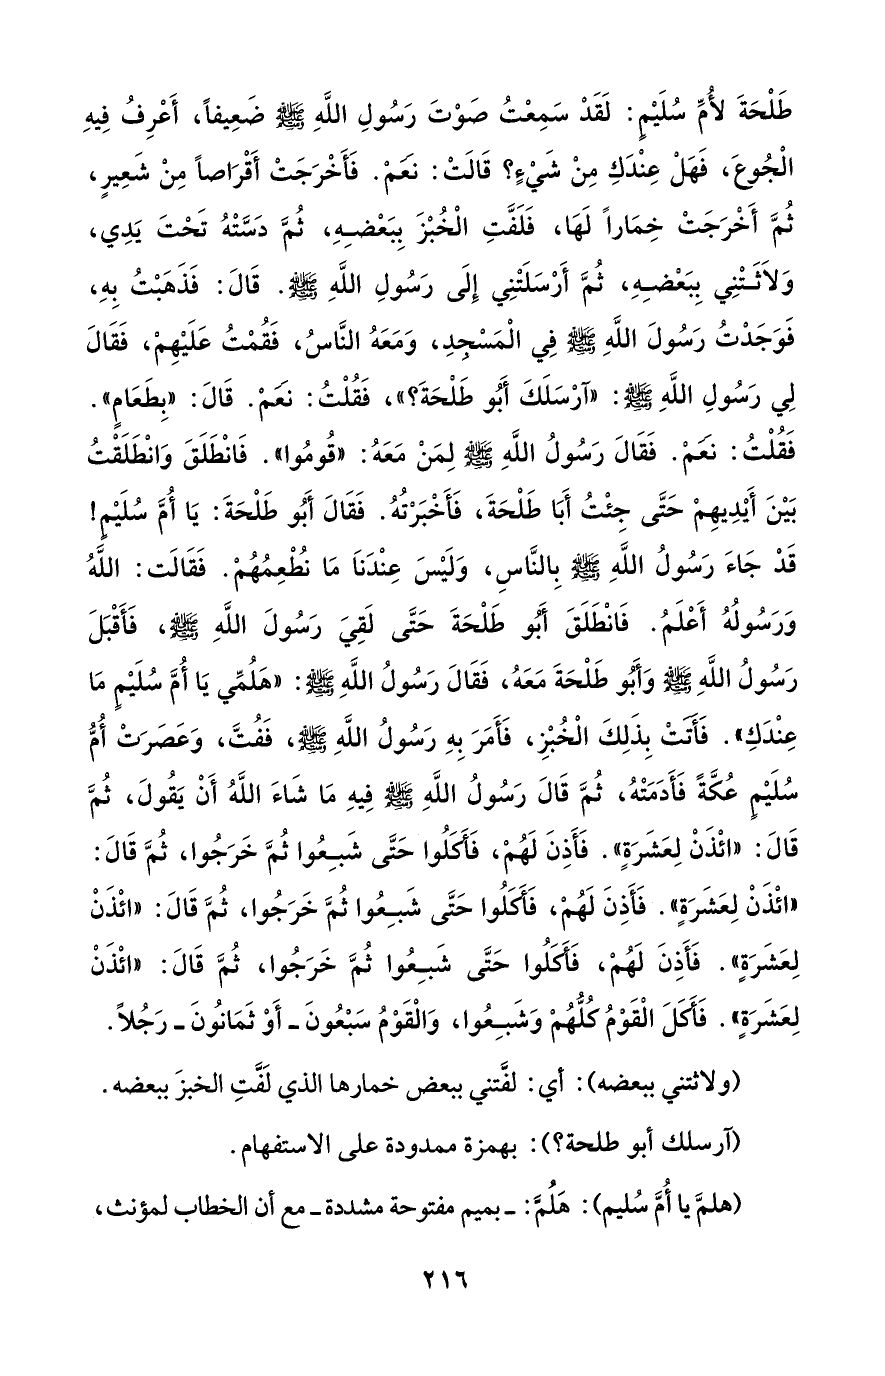 طَلْحَةَ لأُمِّ سُلَيْمٍ: لَقَدْ سَمِعْتُ صَوْتَ رَسُولِ اللَّهِ ﷺ ضَعِيفاً، أَعْرِفُ فِيهِ
الْجُوعَ، فَهَلْ عِنْدَكِ مِنْ شَيْءٍ؟ قَالَتْ: نَعَمْ. فَأَخْرَجَتْ أَقْرَاصاً مِنْ شَعِيرٍ،
ثُمَّ أَخْرَجَتْ خِمَاراً لَهَا، فَلَفَّتِ الْخُبْزَ بِبَعْضِهِ، ثُمَّ دَسَّتْهُ تَحْتَ يَدِي،
وَلاَثَتْنِي بِبَعْضِهِ، ثُمَّ أَرْسَلَتْنِي إِلَى رَسُولِ اللَّهِ ﷺ. قَالَ: فَذَهَبْتُ بِهِ،
فَوَجَدْتُ رَسُولَ اللَّهِ ﷺ فِي الْمَسْجِدِ، وَمَعَهُ النَّاسُ، فَقُمْتُ عَلَيْهِمْ، فَقَالَ
لِي رَسُولِ اللَّهِ ﷺ: «آرْسَلَكَ أَبُو طَلْحَةَ؟»، فَقُلْتُ: نَعَمْ. قَالَ: «بِطَعَامٍ».
فَقُلْتُ: نَعَمْ. فَقَالَ رَسُولُ اللَّهِ ﷺ لِمَنْ مَعَهُ: «قُومُوا». فَانْطَلَقَ وَانْطَلَقْتُ
بَيْنَ أَيْدِيهِمْ حَتَّى جِئْتُ أَبَا طَلْحَةَ، فَأَخْبَرْتُهُ. فَقَالَ أَبُو طَلْحَةَ: يَا أُمَّ سُلَيْمٍ!
قَدْ جَاءَ رَسُولُ اللَّهِ ﷺ بِالنَّاسِ، وَلَيْسَ عِنْدَنَا مَا نُطْعِمُهُمْ. فَقَالَت: اللَّهُ
وَرَسُولُهُ أَعْلَمُ. فَانْطَلَقَ أَبُو طَلْحَةَ حَتَّى لَقِيَ رَسُولَ اللَّهِ ﷺ، فَأَقْبَلَ
رَسُولُ اللَّهِ ﷺ وَأَبُو طَلْحَةَ مَعَهُ، فَقَالَ رَسُولُ اللَّهِ ﷺ: «هَلُمِّي يَا أُمَّ سُلَيْمٍ مَا
عِنْدَكِ». فَأَتَتْ بِذَلِكَ الْخُبْزِ، فَأَمَرَ بِهِ رَسُولُ اللَّهِ ﷺ، فَفُتَّ، وَعَصَرَتْ أُمُّ
سُلَيْمٍ عُكَّةً فَأَدَمَتْهُ، ثُمَّ قَالَ رَسُولُ اللَّهِ ﷺ فِيهِ مَا شَاءَ اللَّهُ أَنْ يَقُولَ، ثُمَّ
قَالَ: «ائْذَنْ لِعَشَرَةٍ». فَأَذِنَ لَهُمْ، فَأَكَلُوا حَتَّى شَبِعُوا ثُمَّ خَرَجُوا، ثُمَّ قَالَ:
«ائْذَنْ لِعَشَرَةٍ». فَأَذِنَ لَهُمْ، فَأَكَلُوا حَتَّى شَبِعُوا ثُمَّ خَرَجُوا، ثُمَّ قَالَ: «ائْذَنْ
لِعَشَرَةٍ». فَأَذِنَ لَهُمْ، فَأَكَلُوا حَتَّى شَبِعُوا ثُمَّ خَرَجُوا، ثُمَّ قَالَ: «ائْذَنْ
لِعَشَرَةٍ». فَأَكَلَ الْقَوْمُ كُلُّهُمْ وَشَبِعُوا، وَالْقَوْمُ سَبْعُونَ ـ أَوْ ثَمَانُونَ ـ رَجُلاً.
(ولاثتني ببعضه): أي: لفَّتني ببعض خمارها الذي لَفَّتِ الخبزَ ببعضه.
(آرسلك أبو طلحة؟): بهمزة ممدودة على الاستفهام.
(هلمَّ يا أُمَّ سُليم): هَلُمَّ: ـ بميم مفتوحة مشددة ـ مع أن الخطاب لمؤنث،
٢١٦